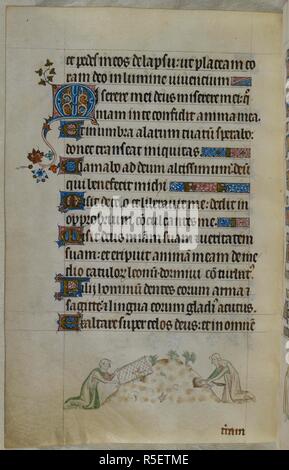 et pedes meos de lapsu: ut placeam co
ram deo in lumine viventium
Miserere mei deus miserere mei: q
niam in te confidit anima mea
Et in umbra alarum tuarum sperabo:
donec transeat iniquitas
Clamabo ad deum altissimum: deum
qui benefecit michi
Misit de celo et liberavit me: dedit in
opprobrium conculcantes me
Misit deus misericordiam suam et veritatem
suam: et eripuit animam meam de me
dio catulorum leonum dormivi conturbatus
Filii hominum dentes eorum arma et
sagitte: et lingua eorum gladius acutus
Exaltare super celos deus: et in omnem
tiram
alamy
Image ID: R5ETME
www.alamy.com